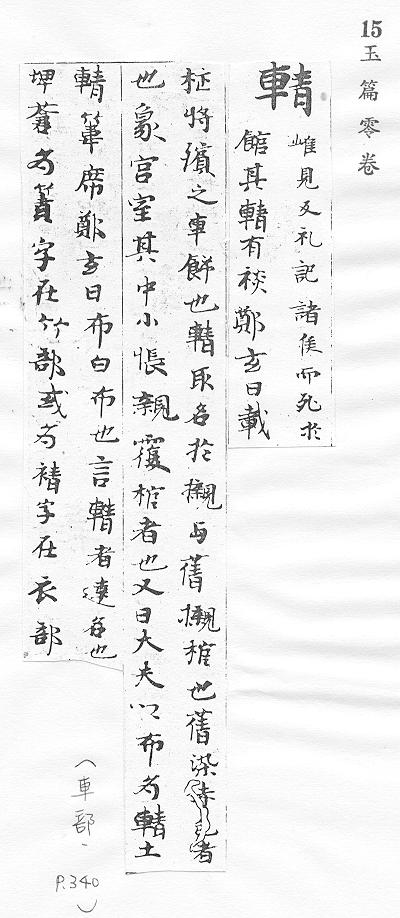 15 玉篇零卷
輤 雌見反礼記諸侯而死於
館其輤有裧鄭玄曰載
柩將殯之車餝也輤取名於櫬与蒨櫬棺也蒨染者
也象宮室其中小帳親覆棺者也又曰大夫以布为輤士
輤葦席鄭玄曰布白布也言輤者達名也
埤蒼为簀字在竹部或为䙺字在衣部
(車部、
P.340)